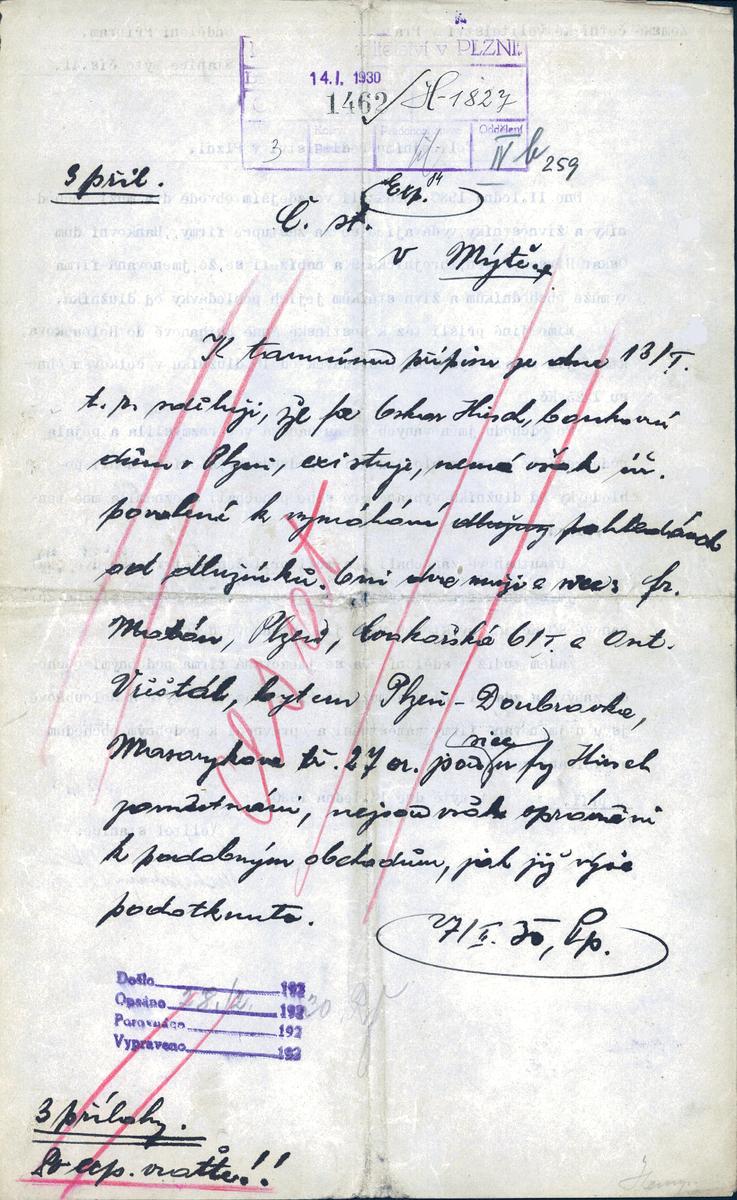 ditelství v PLZNI.
14.I. 1930
1462 / H-1827
3
Oddělení
IV b 259
3 příl.
Exp.
Č. st.
v Mýtě.
K tamnímu přípisu ze dne 13/I.
t. r. sděluji, že fa Oskar Hirsch, bankovní
dům v Plzni, existuje, nemá však úř.
povolení k vymáhání pohledávek
od dlužníků. Oni dva muži a sice: Fr.
Plzeň, 61/I. a Ant.
Vršták, bytem Plzeň-Doubravka,
Masarykova tř. 27 or. jsou sice u fy Hirsch
zaměstnáni, nejsou však oprávněni
k podobným obchodům, jak již výše
podotknuto.
27/I. 30, Pp.
Čístek
Došlo 192
Opsáno 28/1. 1930
Porovnáno 192
Vypraveno 192
3 přílohy.
Po exp. vraťte!!